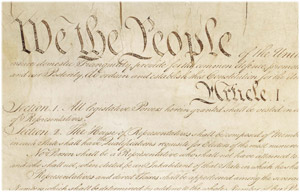 We the People of the Unit
insure domestic Tranquility, provide for the common defence, promote
and our Posterity, do ordain and establish this Constitution for the Uni
Article I.
Section 1. All legislative Powers herein granted shall be vested in a
of Representatives.
Section 2. The House of Representatives shall be composed of Mem
in each State shall have Qualifications requisite for Electors of the most numerous
No Person shall be a Representative who shall not have attained
and who shall not, when elected, be an Inhabitant of that State in which
Representatives and direct Taxes shall be apportioned among the